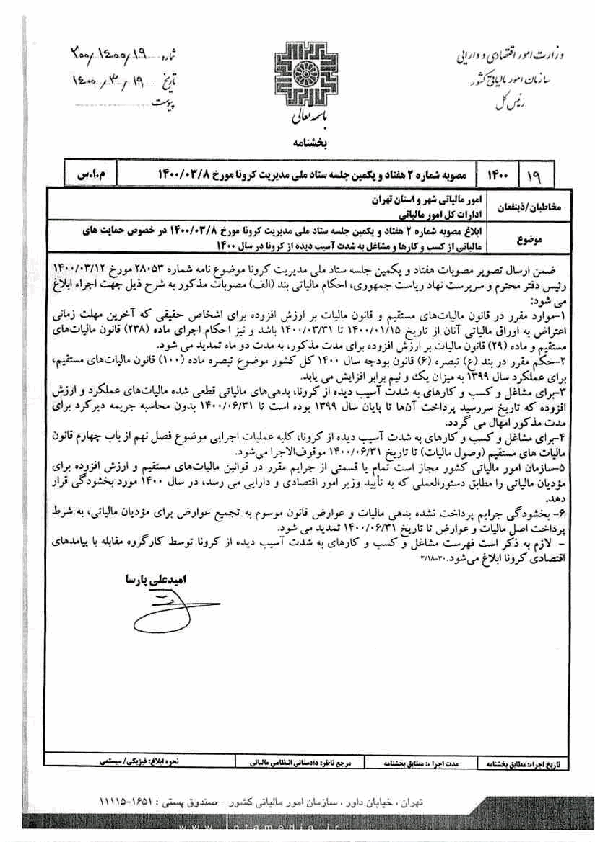 وزارت امور اقتصادی و دارایی
سازمان امور مالیاتی کشور
رئیس کل
باسمه تعالی
بخشنامه
شماره ۲۰۰/۱۴۰۰/۱۹
تاریخ ۱۴۰۰/۳/۱۹
پیوست
۱۹ ۱۴۰۰ مصوبه شماره ۲ هفتاد و یکمین جلسه ستاد ملی مدیریت کرونا مورخ ۱۴۰۰/۰۳/۸ م.ا.س
مخاطبان/ذینفعان امور مالیاتی شهر و استان تهران
ادارات کل امور مالیاتی
موضوع ابلاغ مصوبه شماره ۲ هفتاد و یکمین جلسه ستاد ملی مدیریت کرونا مورخ ۱۴۰۰/۰۳/۸ در خصوص حمایت های
مالیاتی از کسب و کارها و مشاغل به شدت آسیب دیده از کرونا در سال ۱۴۰۰
ضمن ارسال تصویر مصوبات هفتاد و یکمین جلسه ستاد ملی مدیریت کرونا موضوع نامه شماره ۲۸۰۵۳ مورخ ۱۴۰۰/۰۳/۱۲
رئیس دفتر محترم و سرپرست نهاد ریاست جمهوری، احکام مالیاتی بند (الف) مصوبات مذکور به شرح ذیل جهت اجراء ابلاغ
می شود:
۱-موارد مقرر در قانون مالیات‌های مستقیم و قانون مالیات بر ارزش افزوده برای اشخاص حقیقی که آخرین مهلت زمانی
اعتراض به اوراق مالیاتی آنان از تاریخ ۱۴۰۰/۰۱/۱۵ تا ۱۴۰۰/۰۳/۳۱ باشد و نیز احکام اجرای ماده (۲۳۸) قانون مالیات‌های
مستقیم و ماده (۲۹) قانون مالیات بر ارزش افزوده برای مدت مذکور، به مدت دو ماه تمدید می شود.
۲-حکم مقرر در بند (ع) تبصره (۶) قانون بودجه سال ۱۴۰۰ کل کشور موضوع تبصره ماده (۱۰۰) قانون مالیات‌های مستقیم،
برای عملکرد سال ۱۳۹۹ به میزان یک و نیم برابر افزایش می یابد.
۳-برای مشاغل و کسب و کارهای به شدت آسیب دیده از کرونا، بدهی‌های مالیاتی قطعی شده مالیات‌های عملکرد و ارزش
افزوده که تاریخ سررسید پرداخت آن‌ها تا پایان سال ۱۳۹۹ بوده است تا ۱۴۰۰/۰۶/۳۱ بدون محاسبه جریمه دیرکرد برای
مدت مذکور امهال می گردد.
۴-برای مشاغل و کسب و کارهای به شدت آسیب دیده از کرونا، کلیه عملیات اجرایی موضوع فصل نهم از باب چهارم قانون
مالیات های مستقیم (وصول مالیات) تا تاریخ ۱۴۰۰/۰۶/۳۱ موقوف‌الاجرا می‌شود.
۵-سازمان امور مالیاتی کشور مجاز است تمام یا قسمتی از جرایم مقرر در قوانین مالیات‌های مستقیم و ارزش افزوده برای
مؤدیان مالیاتی را مطابق دستورالعملی که به تأیید وزیر امور اقتصادی و دارایی می رسد، در سال ۱۴۰۰ مورد بخشودگی قرار
دهد.
۶- بخشودگی جرایم پرداخت نشده بدهی مالیات و عوارض قانون موسوم به تجمیع عوارض برای مؤدیان مالیاتی، به شرط
پرداخت اصل مالیات و عوارض تا تاریخ ۱۴۰۰/۰۶/۳۱ تمدید می شود.
- لازم به ذکر است فهرست مشاغل و کسب و کارهای به شدت آسیب دیده از کرونا توسط کارگروه مقابله با پیامدهای
اقتصادی کرونا ابلاغ می‌شود.
امیدعلی پارسا
تاریخ اجرا: مطابق بخشنامه مدت اجرا: مطابق بخشنامه مرجع ناظر: دادستانی انتظامی مالیاتی نحوه ابلاغ: فیزیکی/سیستمی
تهران، خیابان داور، سازمان امور مالیاتی کشور - صندوق پستی : ۱۶۵۱-۱۱۱۱۵